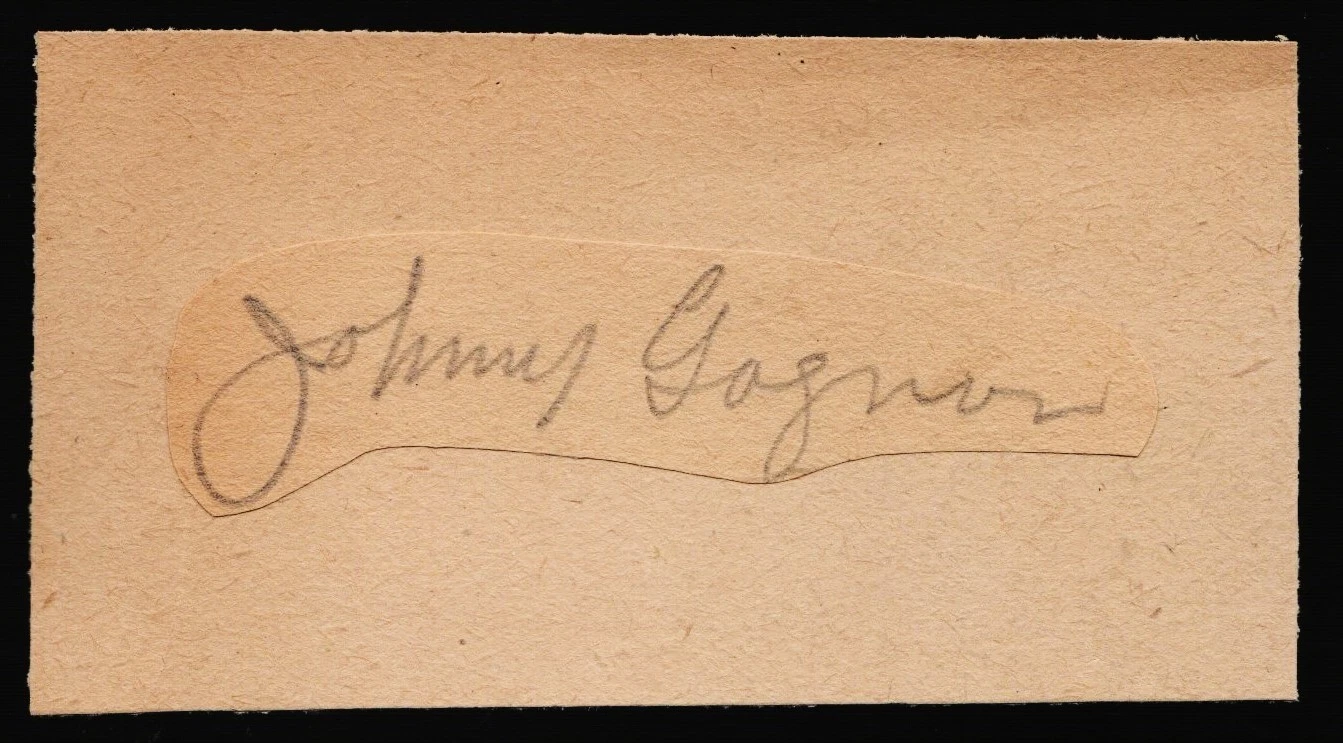 Johnny Gagnon